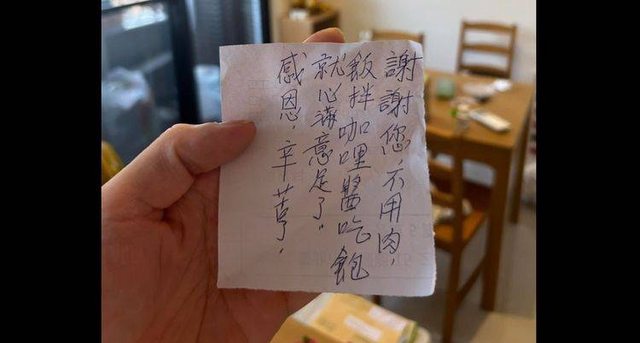 謝謝您,不用肉,
飯拌咖哩醬吃飽
就心滿意足了。
感恩,辛苦了,